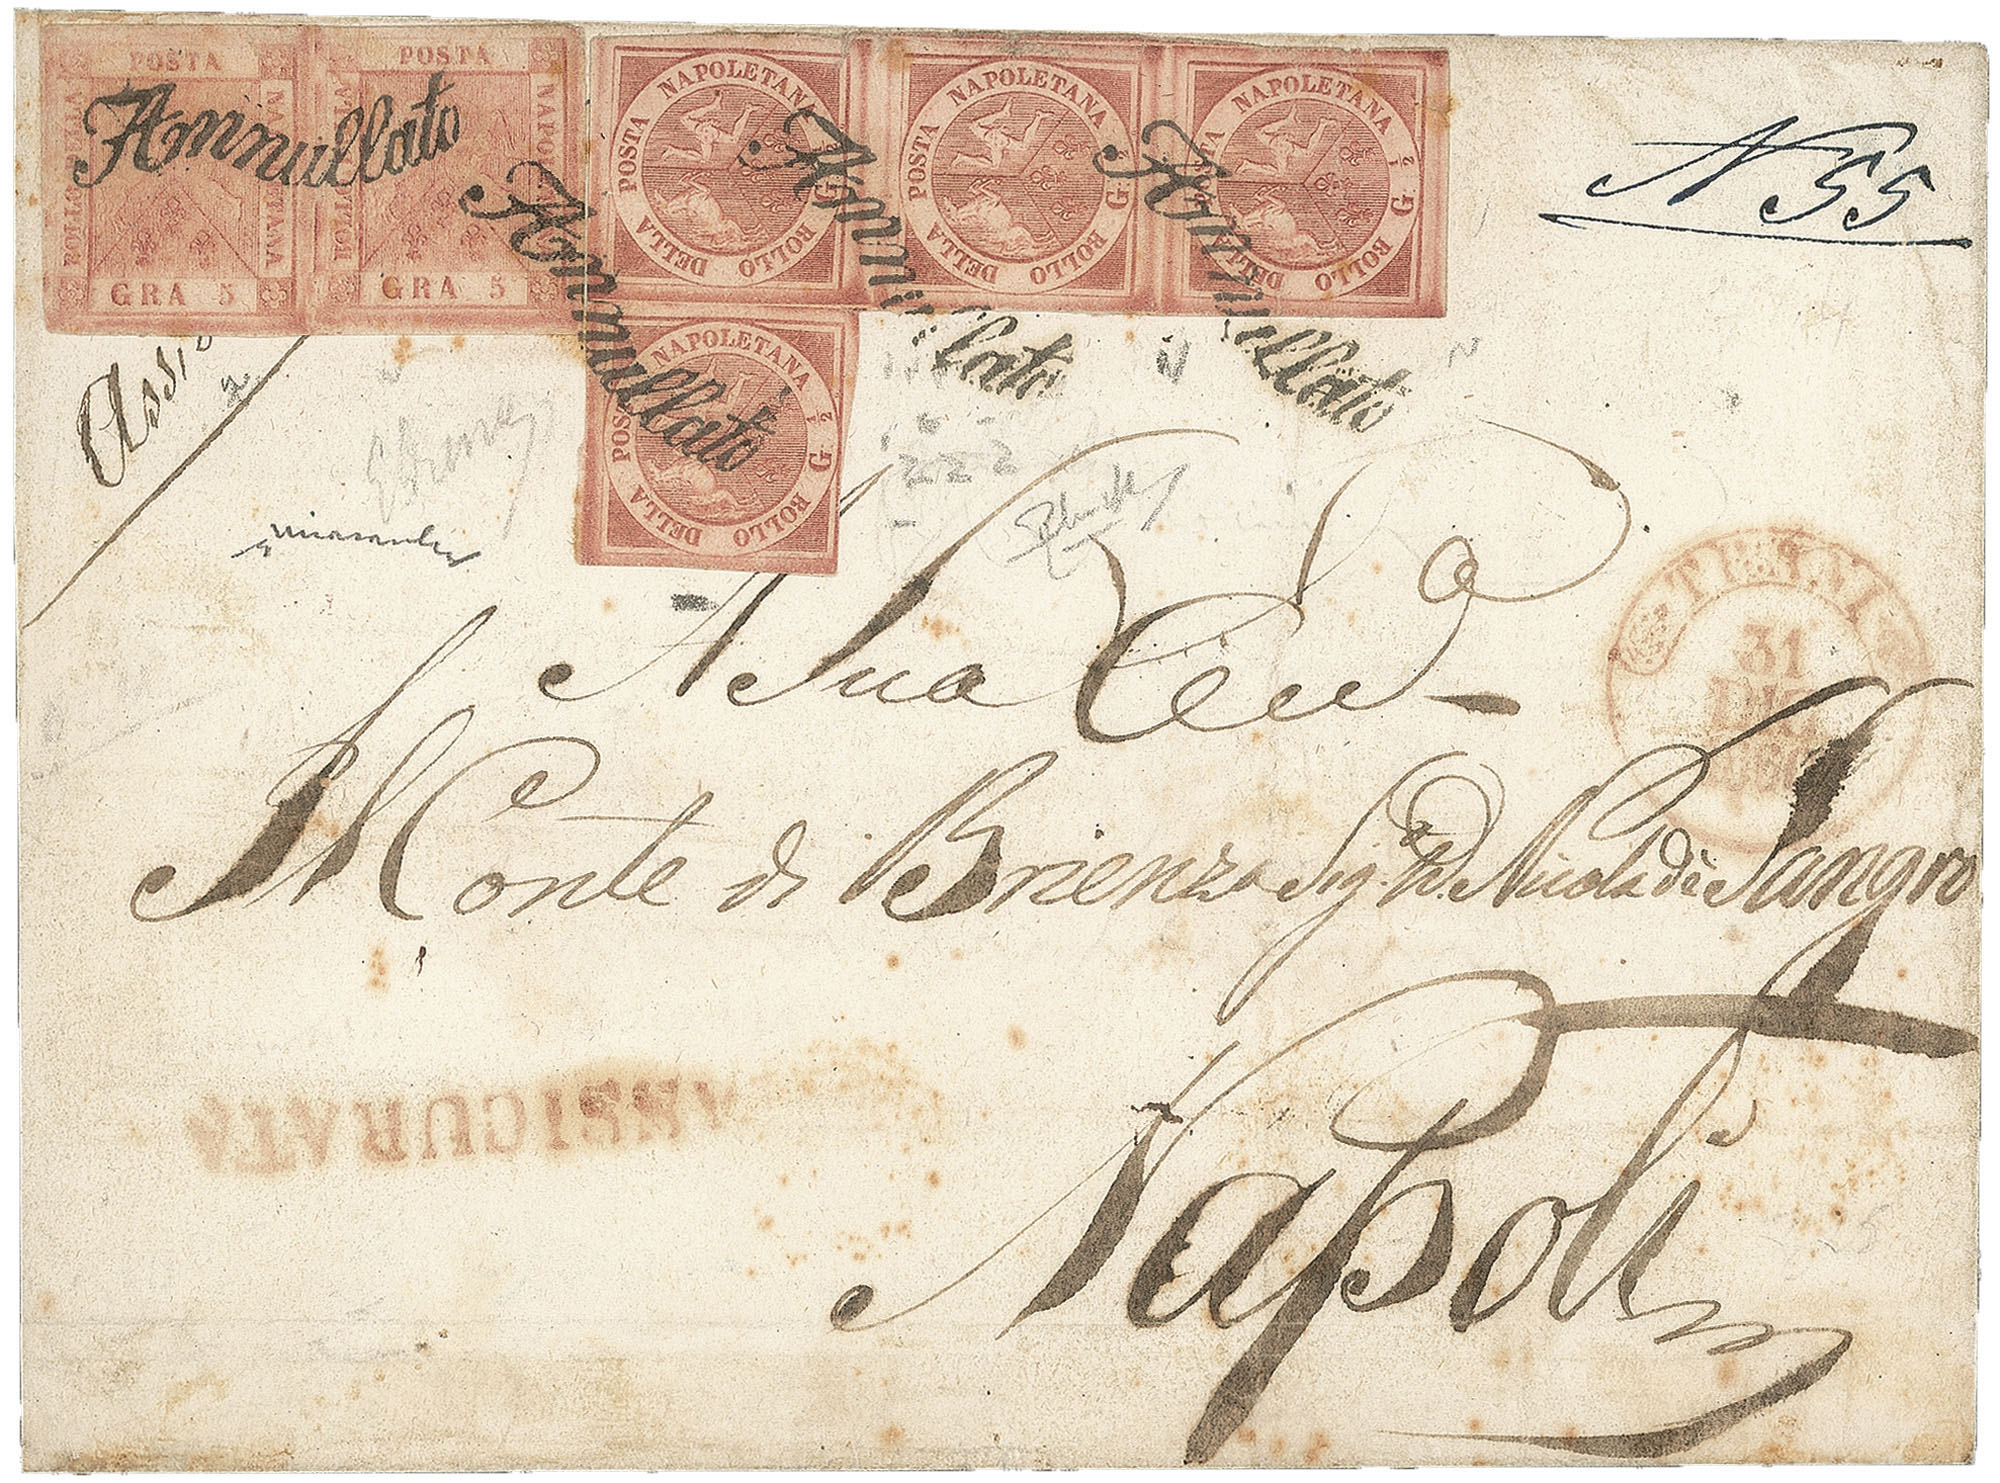 POSTA NAPOLETANA BOLLO DELLA GRA 5
POSTA NAPOLETANA BOLLO DELLA GRA 5
POSTA NAPOLETANA G ½ BOLLO DELLA
POSTA NAPOLETANA G ½ BOLLO DELLA
POSTA NAPOLETANA G ½ BOLLO DELLA
POSTA NAPOLETANA G ½ BOLLO DELLA
Annullato
Annullato
Annullato
Annullato
N 55
Assi
A Sua Ecc
Il Conte di Brienza Sig. D. Nicola di Sangro
Napoli
31
ASSICURATA